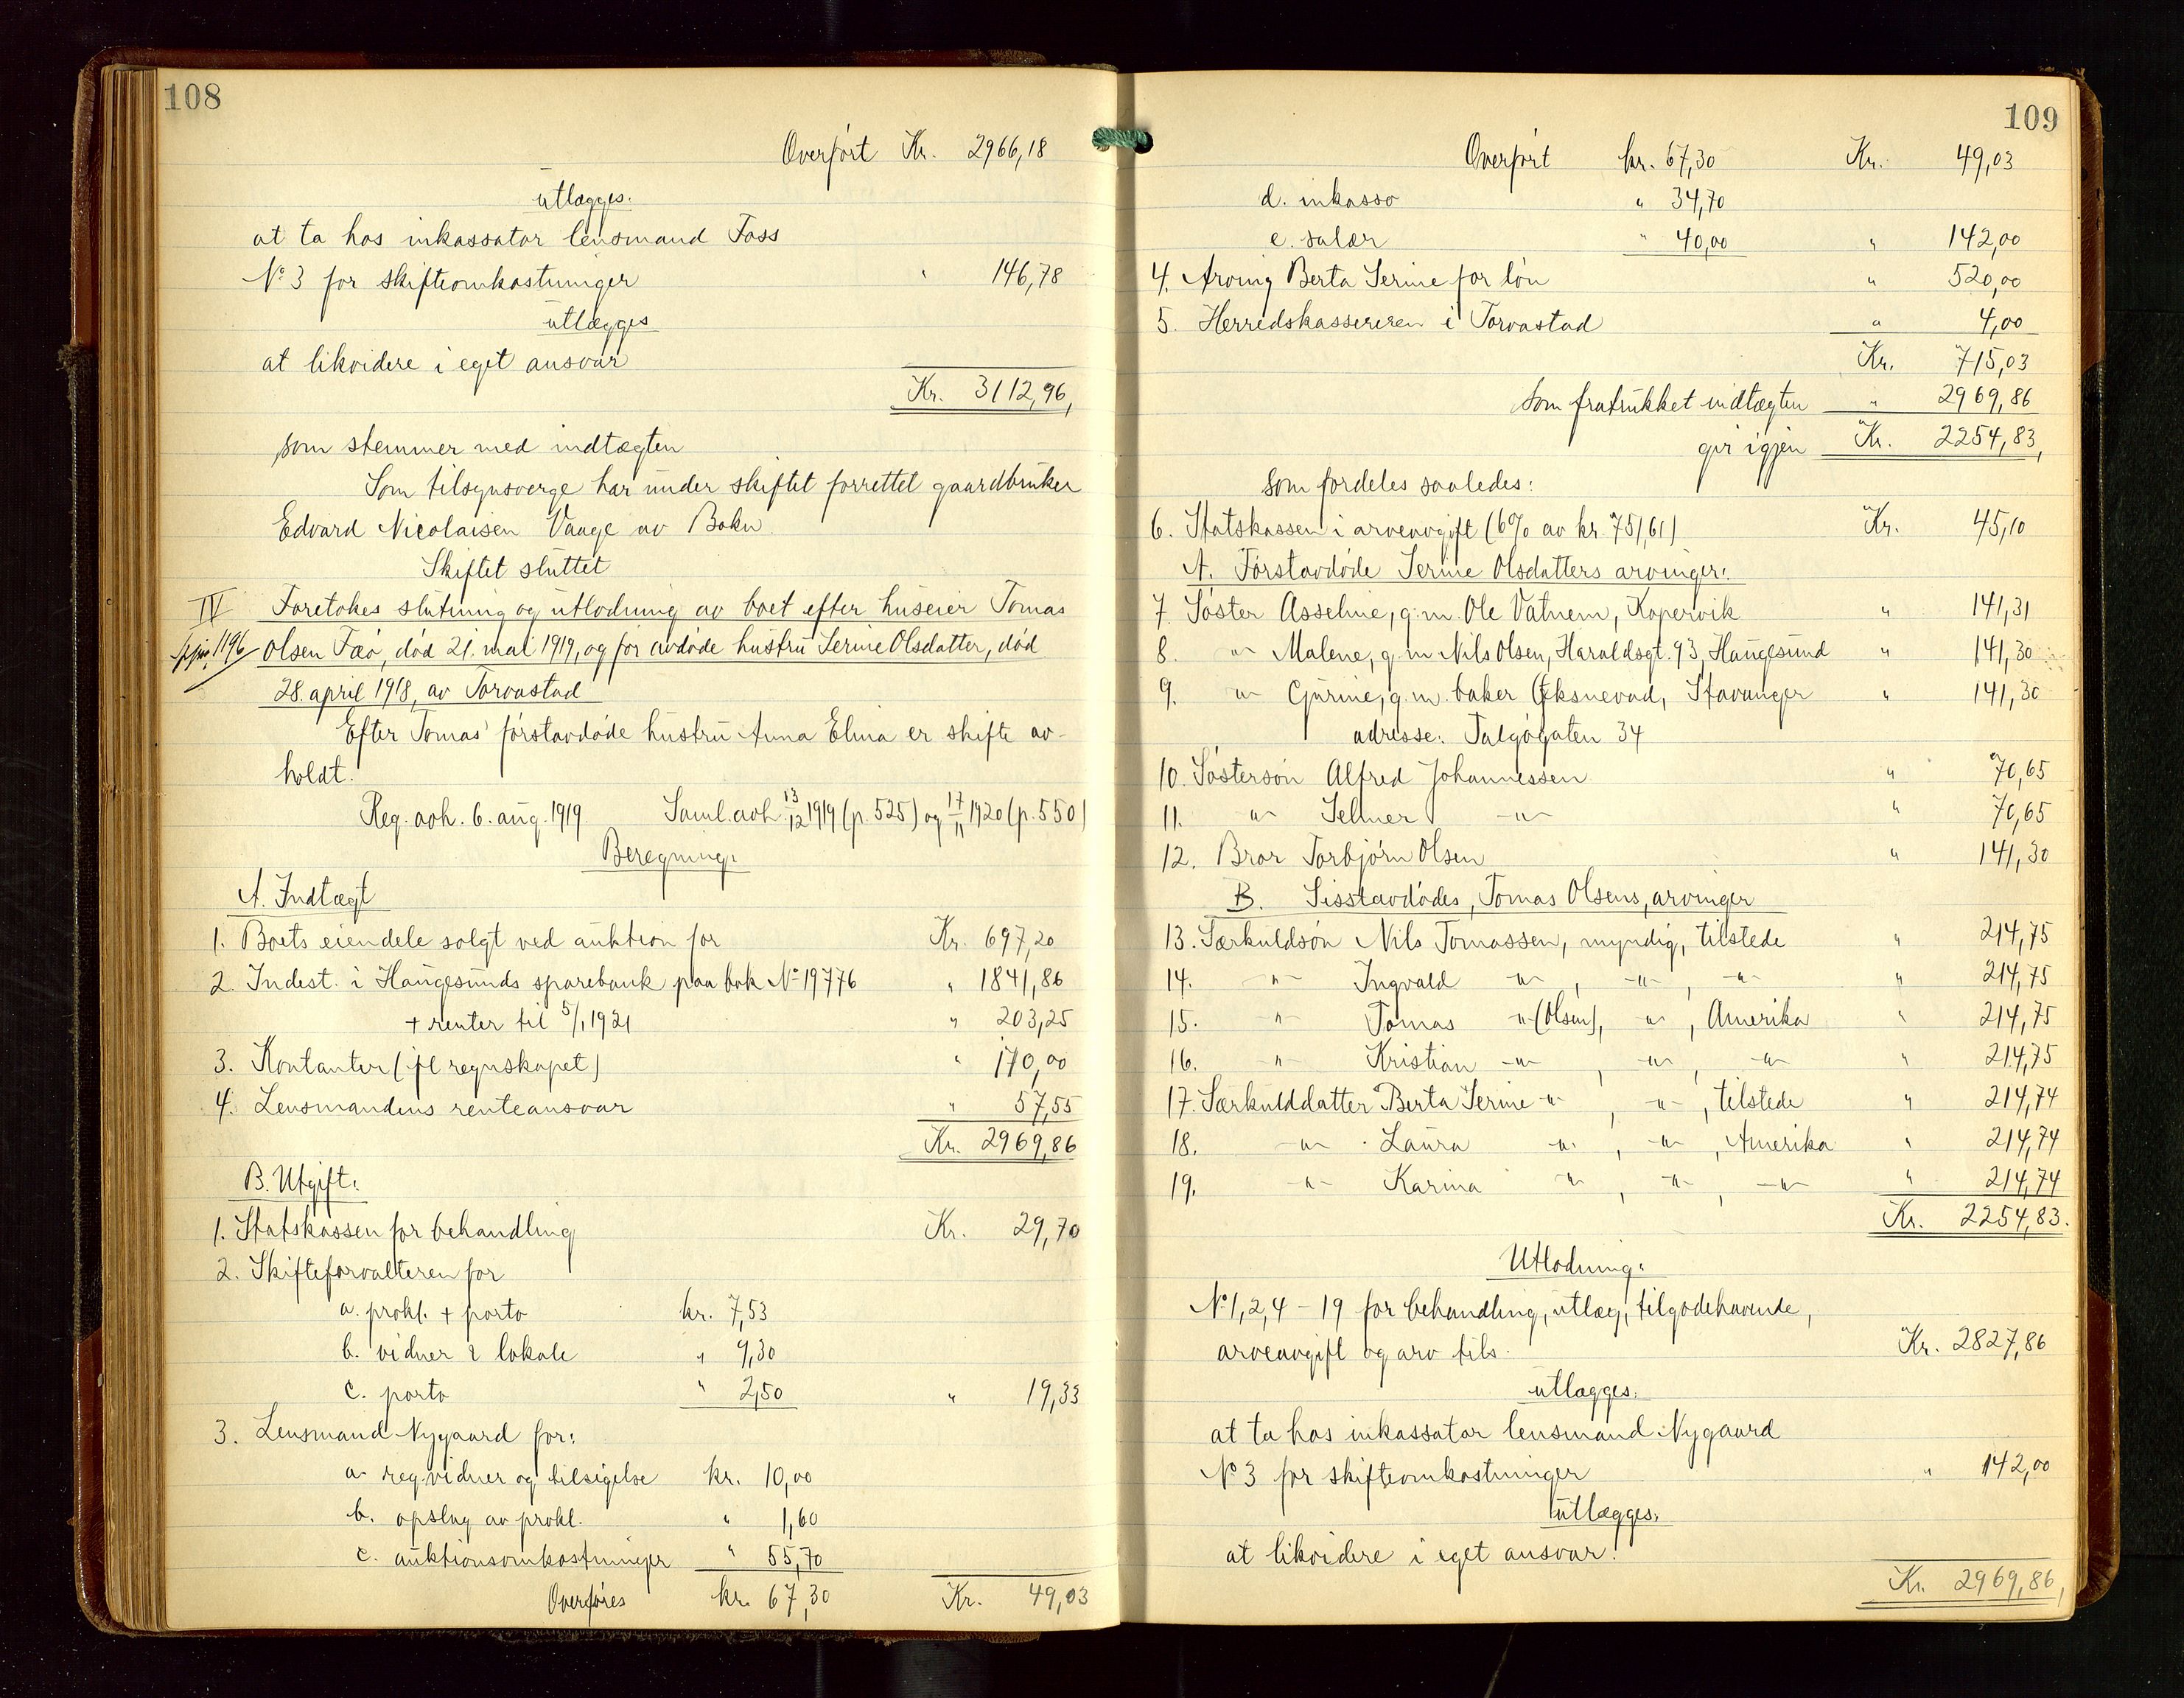 108
Overført Kr. 2966,18
utlægges:
at ta hos inkassator lensmand Foss
No 3 for skifteomkostninger " 146,78
utlægges
at likvidere i eget ansvar
Kr. 3112,96,
som stemmer med indtægten
Som tilsynsverge har under skiftet forrettet gaardbruker
Edvard Nicolaisen Vaage av Bokn.
Skiftet sluttet
IV Foretokes slutning og utlodning av boet efter huseier Tomas
1196 Olsen Feø, død 21. mai 1919, og før avdøde hustru Serine Olsdatter, død
28. april 1918, av Torvastad
Efter Tomas' førstavdøde hustru Anna Elina er skifte av-
holdt.
Reg. avh. 6. aug. 1919 Saml. avh. 13/12 1919 (p. 525) og 17/11 1920 (p. 550)
Beregning:
A. Indtægt
1. Boets eiendele solgt ved auktion for Kr. 697,20
2. Indest. i Haugesunds sparebank paa bok No 19776 " 1841,86
+ renter til 5/1 1921 " 203,25
3. Kontanter (ifl regnskapet) " 170,00
4. Lensmandens renteansvar " 57,55
Kr. 2969,86
B. Utgift:
1. Statskassen for behandling Kr. 29,70
2. Skifteforvalteren for
a. prokl. + porto kr. 7,53
b. vidner & lokale " 9,30
c. porto " 2,50 " 19,33
3. Lensmand Nygaard for:
a. reg. vidner og tilsigelse kr. 10,00
b. opslag av prokl. " 1,60
c. auktionsomkostninger " 55,70
Overføres kr. 67,30 Kr. 49,03
109
Overført kr. 67,30 Kr. 49,03
d. inkasso " 34,70
e. salær " 40,00 " 142,00
4. Arving Berta Serine for løn " 520,00
5. Herredskassereren i Torvastad " 4,00
Kr. 715,03
som fratrukket indtægten " 2969,86
gir igjen Kr. 2254,83,
som fordeles saaledes:
6. Statskassen i arveavgift (6% av kr. 751,61) Kr. 45,10
A. Førstavdøde Serine Olsdatters arvinger:
7. Søster Asseline, g. m. Ole Vatnem, Kopervik " 141,31
8. -"- Malene, g. m Nils Olsen, Haraldsgt. 93, Haugesund " 141,30
9. -"- Gurine, g. m. baker Øksnevad, Stavanger " 141,30
adresse: Talgøgaten 34
10. Søstersøn Alfred Johannessen " 70,65
11. -"- Selmer -"- " 70,65
12. Bror Torbjørn Olsen " 141,30
B. Sisstavdødes, Tomas Olsens, arvinger
13. Særkuldsøn Nils Tomassen, myndig, tilstede " 214,75
14. -"- Ingvald -"- , -"- , -"- " 214,75
15. -"- Tomas -"- (Olsen), -"- , Amerika " 214,75
16. -"- Kristian -"- , -"- , -"- " 214,75
17. Særkulddatter Berta Serine -"- , -"- , tilstede " 214,74
18. -"- Laura -"- , -"- , Amerika " 214,74
19. -"- Karina -"- , -"- , -"- " 214,74
Kr. 2254,83.
Utlodning:
No 1, 2, 4 - 19 for behandling, utlæg, tilgodehavende,
arveavgift og arv tils. Kr. 2827,86
utlægges:
at ta hos inkassator lensmand Nygaard
No 3 for skifteomkostninger " 142,00
utlægges:
at likvidere i eget ansvar.
Kr. 2969,86,